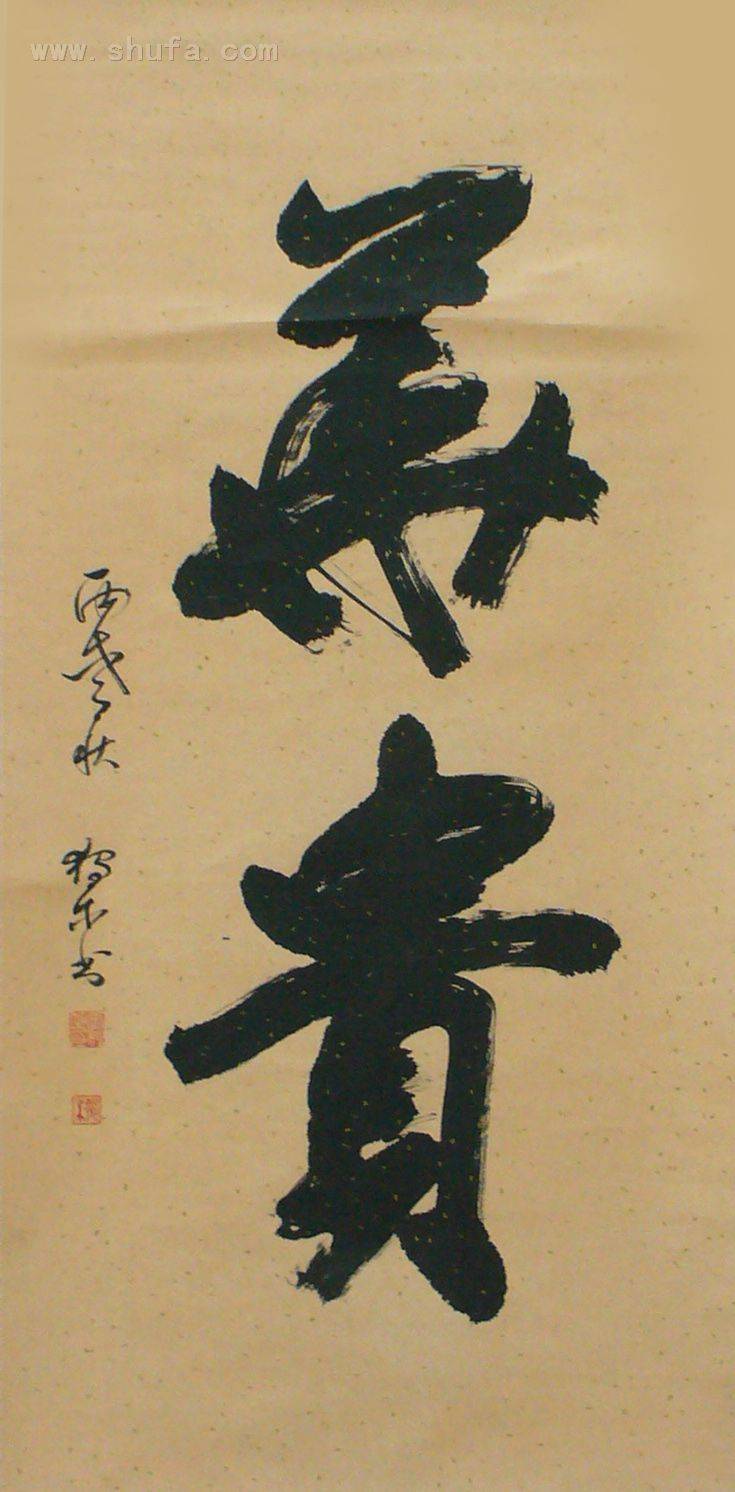 www.shufa.com
華貴
丙戌秋
书